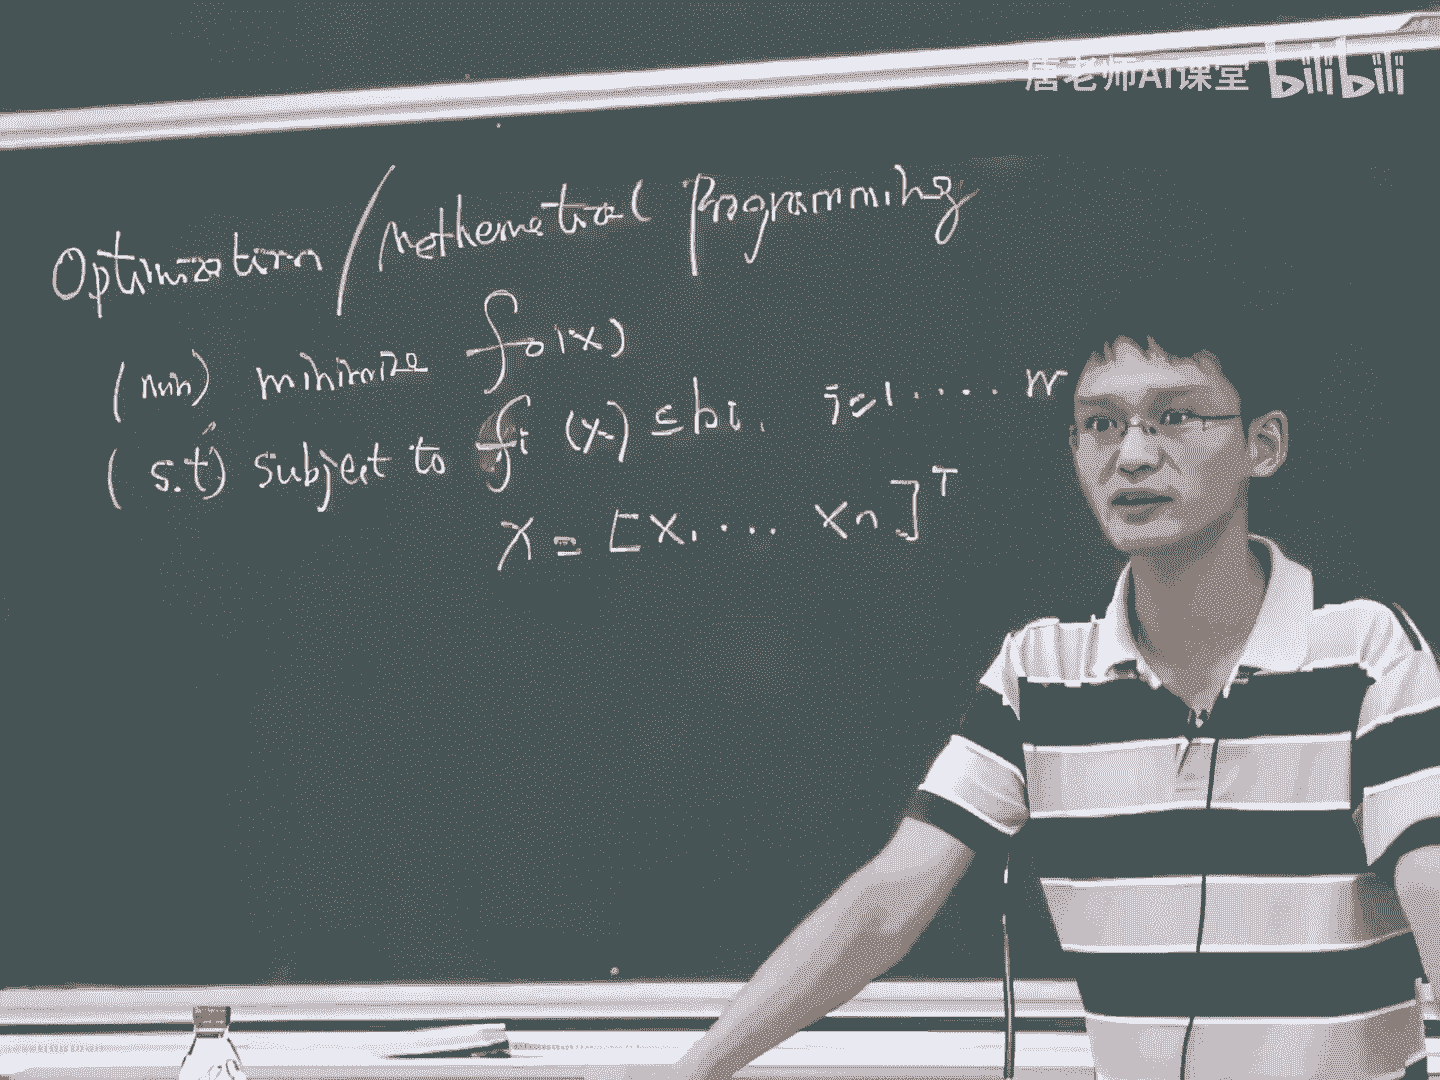 唐老师AI课堂 bilibili
Optimization / Mathematical Programming
(min) minimize f₀(x)
(s.t) subject to fi (x) ≤ bi, i=1 .... m
x = [x₁ .... xn]ᵀ